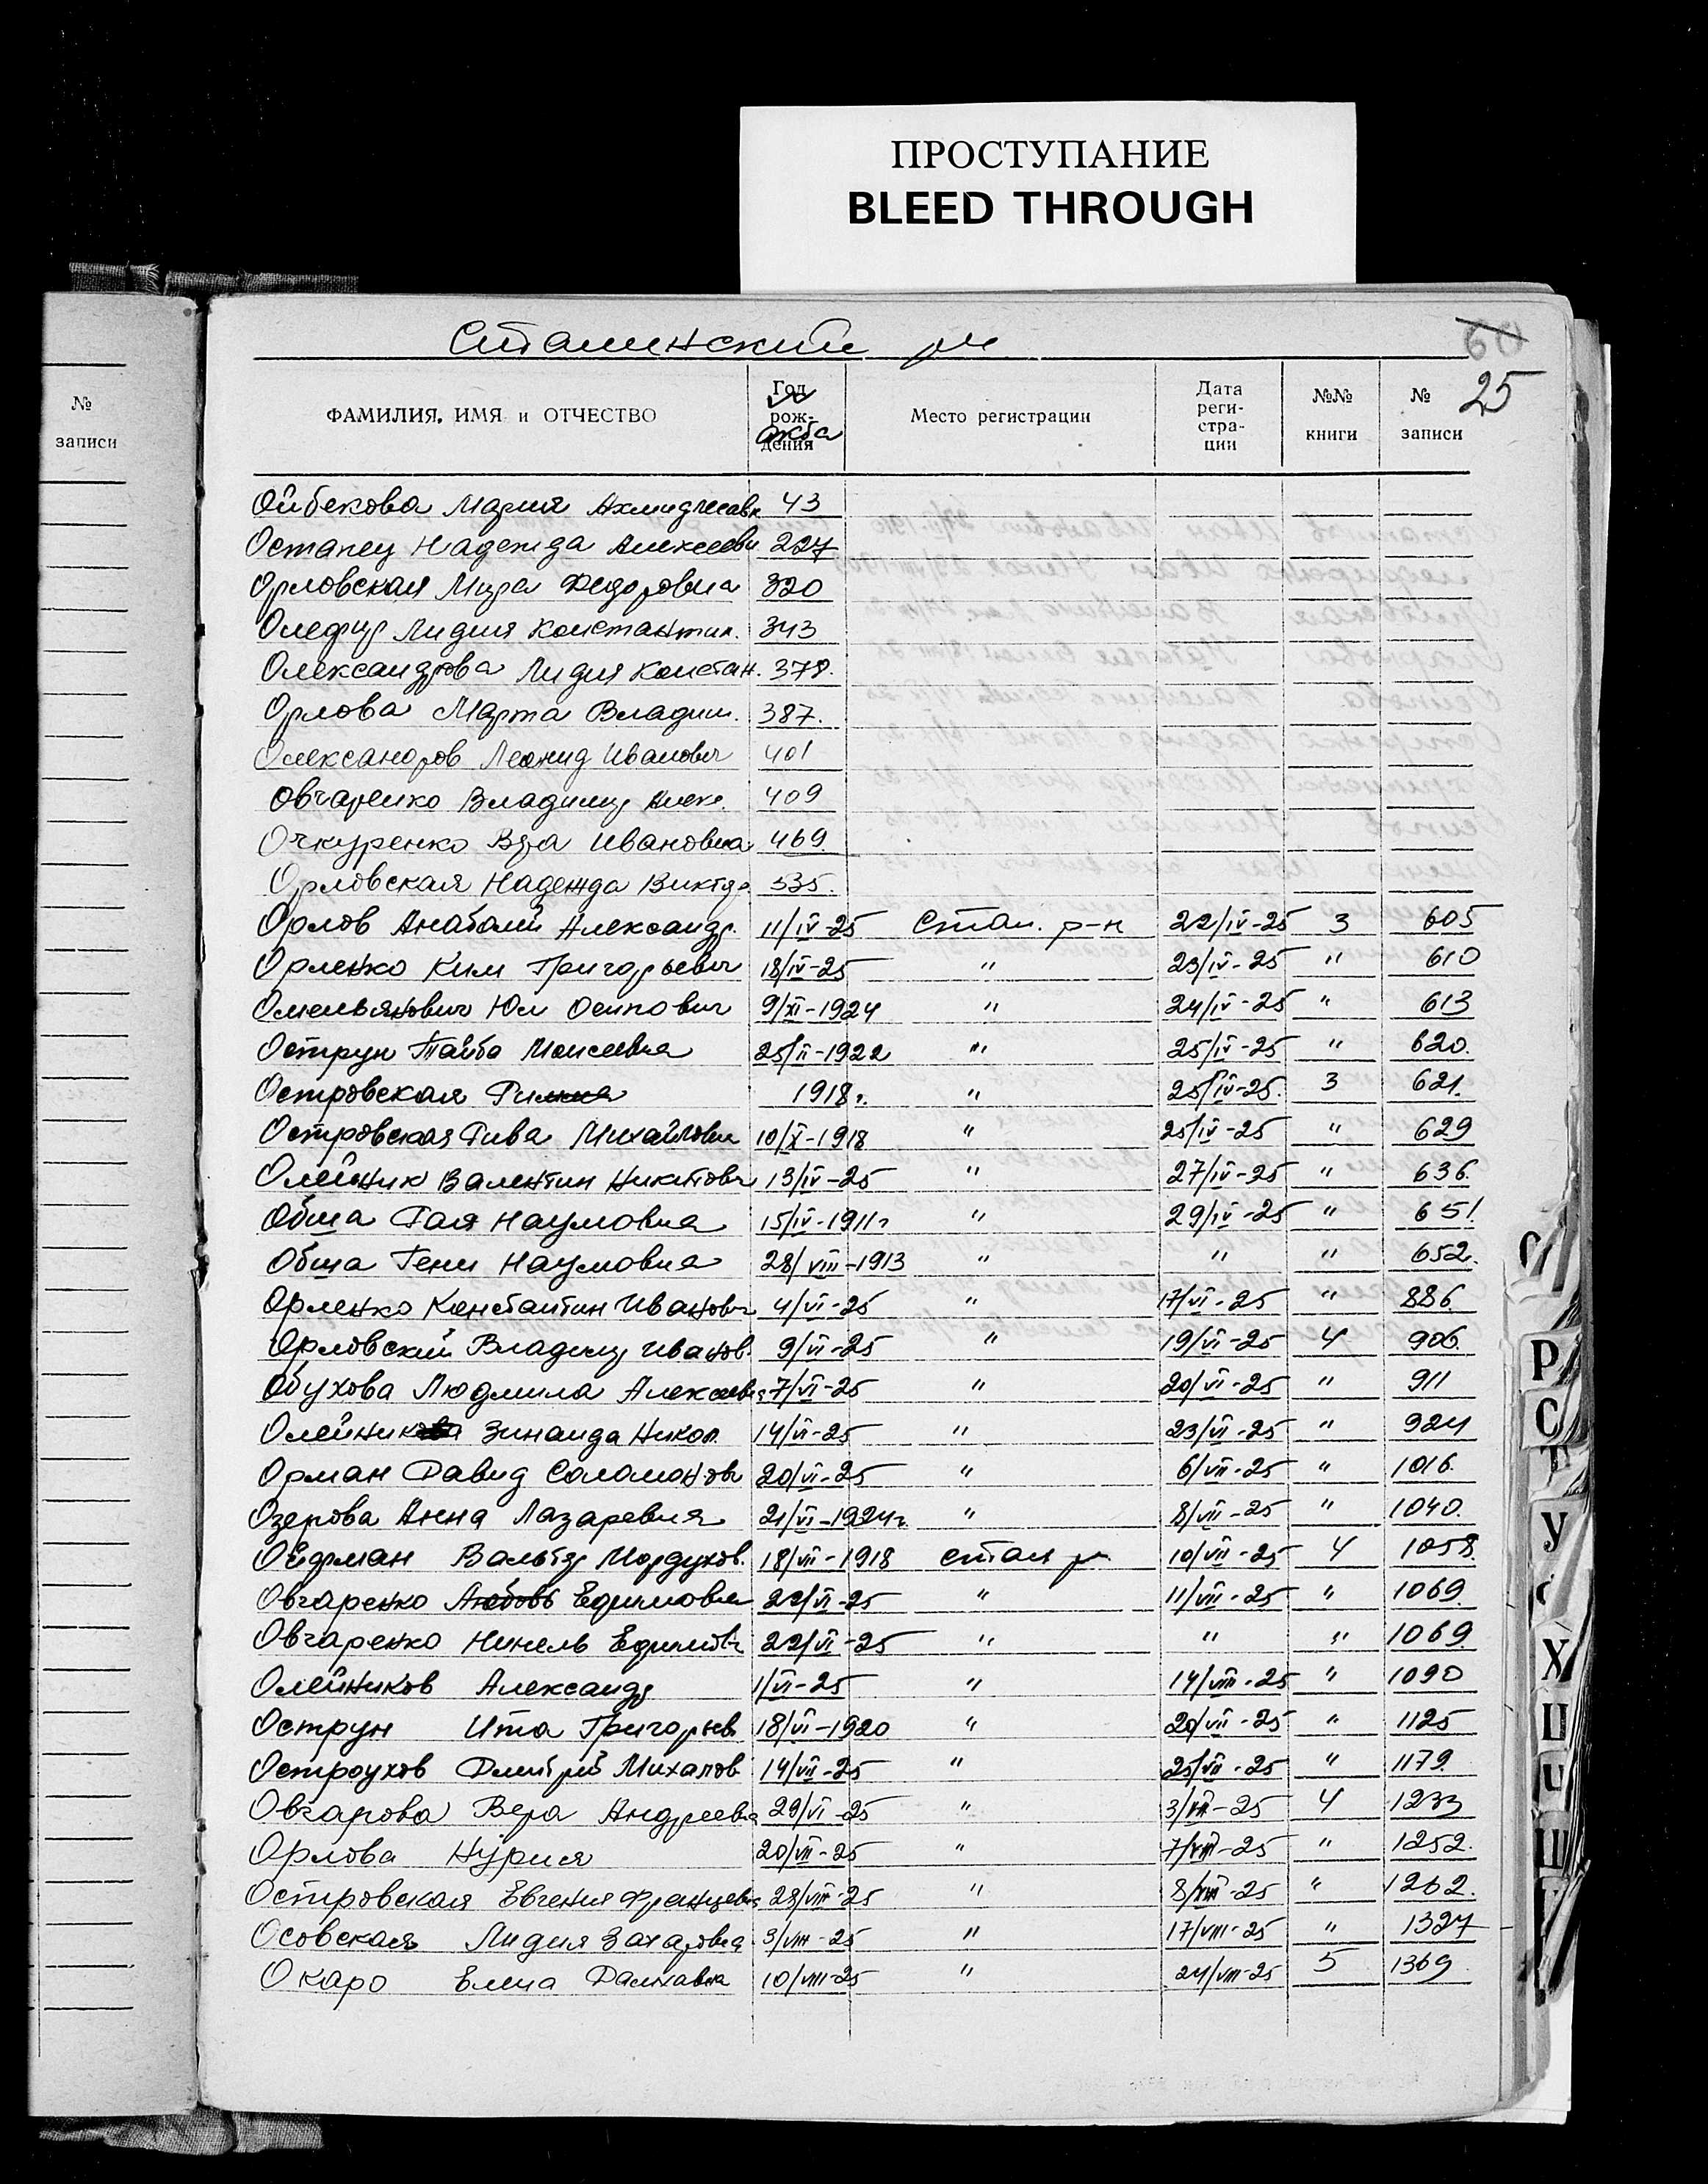 ПРОСТУПАНИЕ
BLEED THROUGH
Сталинский рн
60
25
№ записи
ФАМИЛИЯ, ИМЯ и ОТЧЕСТВО Год рождения акта Место регистрации Дата регистрации №№ книги № записи
Ойбекова Мария 43
Остапец Надежда Алексеевн 227
Орловская Мира Федоровна 320
Олефир Лидия Константин. 343
Олександрова Лидия Констан. 378.
Орлова Марта Владим. 387.
Олександров Леонид Иванович 401
Овчаренко Владимир Алек. 409
Очкуренко Вера Ивановна 469.
Орловская Надежда Виктор. 535.
Орлов Анатолий Александр. 11/IV-25 Стал. р-н 22/IV-25 3 605
Орленко Ким Григорьевич 18/IV-25 " 23/IV-25 " 610
Омельянович Юл Осипович 9/XI-1924 " 24/IV-25 " 613
Острун Тайба Моисеевна 25/II-1922 " 25/IV-25 " 620.
Островская 1918г. " 25/IV-25. 3 621.
Островская Рива Михайловн 10/X-1918 " 25/IV-25 " 629
Олейник Валентин Никитович 13/IV-25 " 27/IV-25 " 636.
Обша Рая Наумовна 15/IV-1911г " 29/IV-25 " 651.
Обша Гени Наумовна 28/VIII-1913 " " " 652.
Орленко Константин Иванович 4/VI-25 " 17/VI-25 " 886
Орловский Владимир Иванов. 9/VI-25 " 19/VI-25 4 906.
Обухова Людмила Алексеевна 7/VI-25 " 20/VI-25 " 911
Олейник Зинаида Никол. 14/VI-25 " 23/VI-25 " 924
Орман Давид Соломонов 20/VI-25 " 6/VII-25 " 1016.
Озерова Анна Лазаревна 21/VI-1924г. " 8/VII-25 " 1040.
Ойфман Вальтер Мордухов. 18/VII-1918 Стал р. 10/VII-25 4 1058.
Овчаренко Любовь Ефимовна 22/VI-25 " 11/VII-25 " 1069.
Овчаренко Нинель Ефимов 22/VI-25 " " " 1069.
Олейников Александр 1/VI-25 " 14/VIII-25 " 1090
Острун Ита Григорьев. 18/VI-1920 " 20/VII-25 " 1125
Остроухов Дмитрий Михайлов 14/VII-25 " 25/VII-25 " 1179.
Овчарова Вера Андреевна 29/VI-25 " 3/VIII-25 4 1233
Орлова Нурия 20/VII-25 " 7/VIII-25 " 1252.
Островская Евгения Францевна 28/VIII-25 " 8/VIII-25 " 1262.
Осовская Лидия Захаровна 3/VIII-25 " 17/VIII-25 " 1327
Окаро Елена 10/VIII-25 " 24/VIII-25 5 1369
Р
С
Т
У
Х
Ц
Ч
Ш